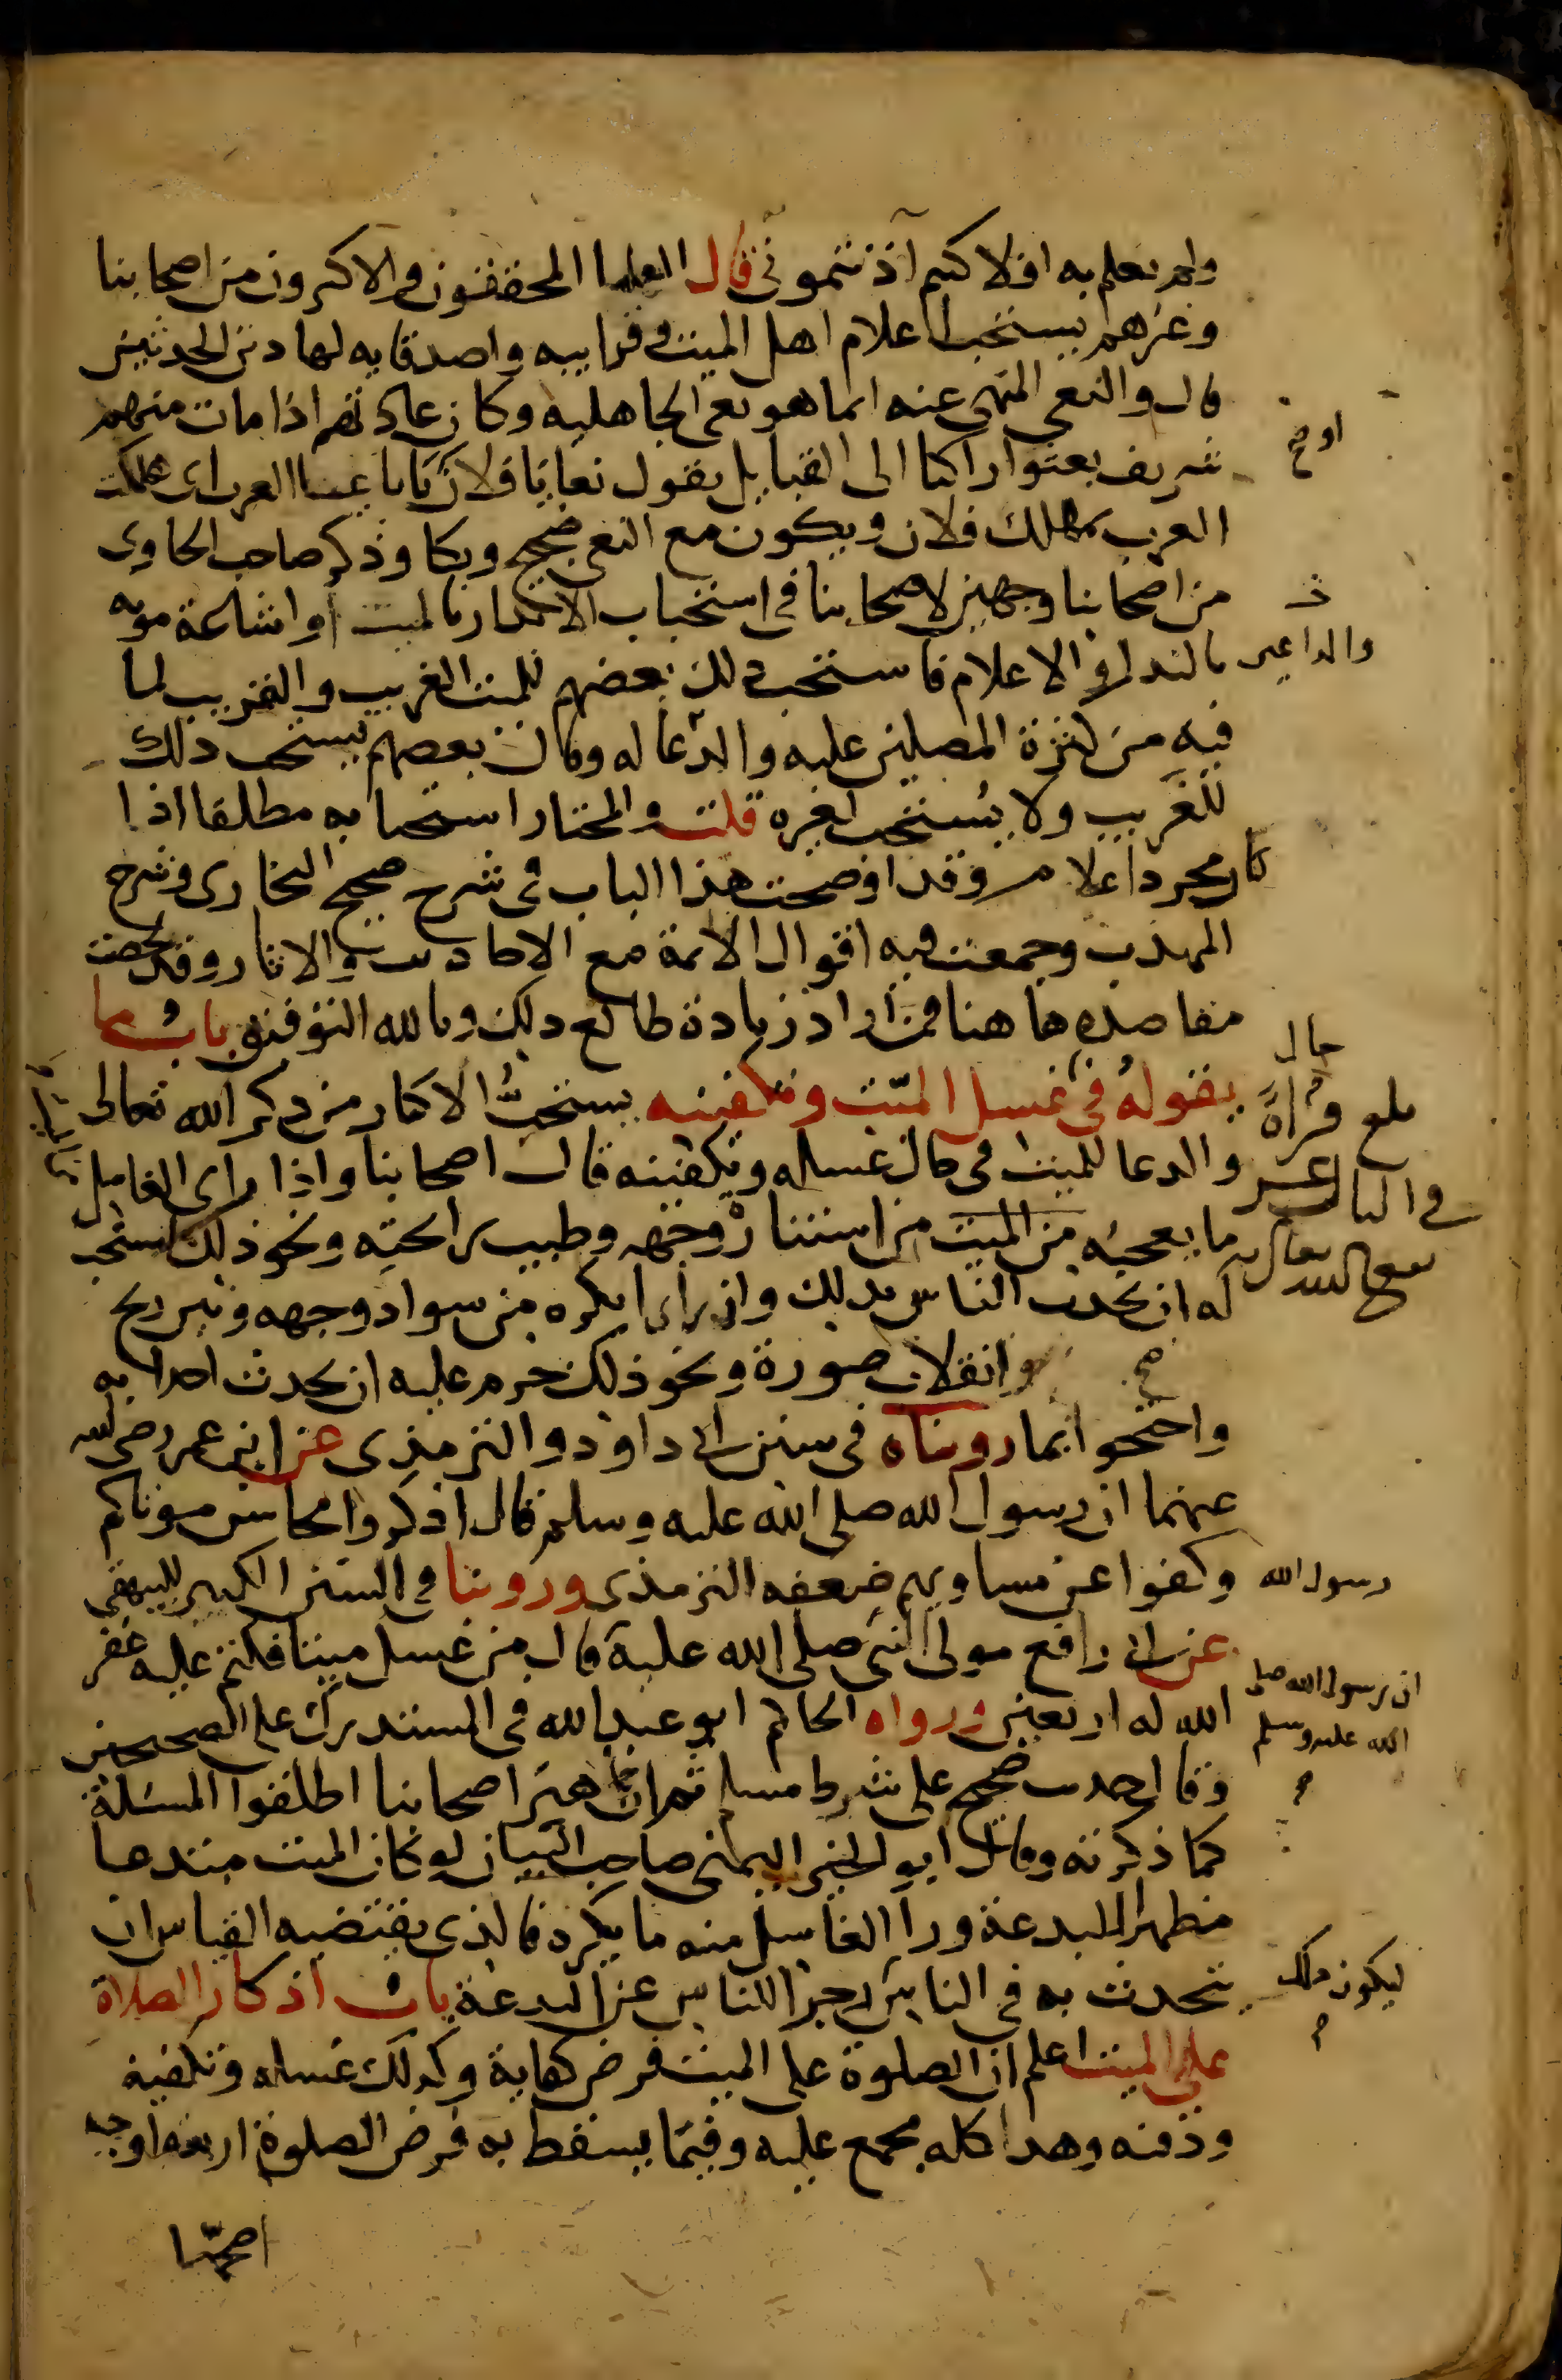 ولم يعلم به افلا كنتم آذنتموني قال العلما المحققون والاكثرون من اصحابنا
وغيرهم يستحب اعلام اهل الميت وقرابيه واصدقايه لهاذين الحديثين
قال والنعي المنهي عنه انما هو نعي الجاهليه وكان عادتهم اذا مات منهم
شريف بعثوا راكبا الى القبايل يقول نعايا فلان يا نعايا العرب اي هلكت
العرب بمهلك فلان ويكون مع النعي ضجيج وبكا وذكر صاحب الحاوي
من اصحابنا وجهين لاصحابنا في استحباب الانذار بالميت او اشاعة موته
بالندا والاعلام فاستحب ذلك بعضهم للميت الغريب والقريب لما
فيه من كثرة المصلين عليه والدعا له وقال بعضهم يستحب ذلك
للغريب ولا يستحب لغيره قلت والمختار استحبابه مطلقا اذا
كان مجرد اعلام وقد اوضحت هذا الباب في شرح صحيح البخاري وشرح
المهذب وجمعت فيه اقوال الائمة مع الاحاديث والاثار وقد لخصت
مقاصده هاهنا فمن اراد زيادة طالع ذلك وبالله التوفيق باب ما
يقوله في غسل الميت وتكفينه يستحب الاكثار من ذكر الله تعالى
والدعا للميت في حال غسله وتكفينه قال اصحابنا واذا راى الغاسل
ما يعجبه من الميت من استنارة وجهه وطيب رائحته ونحو ذلك استحب
له ان يحدث الناس بذلك وان راى ما يكره من سواد وجهه ونتن ريح
وانقلاب صورة ونحو ذلك حرم عليه ان يحدث احدا به
واحتجوا بما رويناه في سنن ابي داود والترمذي عن ابن عمر رضي الله
عنهما ان رسول الله صلى الله عليه وسلم قال اذكروا محاسن موتاكم
وكفوا عن مساويهم ضعفه الترمذي وروينا في السنن الكبير للبيهقي
عن ابي رافع مولى النبي صلى الله عليه قال من غسل ميتا فكتم عليه غفر
الله له اربعين ورواه الحاكم ابو عبد الله في المستدرك على الصحيحين
وقال حديث صحيح على شرط مسلم ثم ان جماهير اصحابنا اطلقوا المسئلة
كما ذكرته وقال ابو الخير اليمني صاحب البيان لو كان الميت مبتدعا
مظهرا للبدعة وراا الغاسل منه ما يكره فالذي يقتضيه القياس ان
يتحدث به في الناس زجرا للناس عن البدعة باب اذكار الصلاة
على الميت اعلم ان الصلوة على الميت فرض كفاية وكذلك غسله وتكفينه
ودفنه وهذا كله مجمع عليه وفيما يسقط به فرض الصلوة اربعة اوجه
اصحها
او صح
والداعين
حال
بلغ قراة
في الثالث عشر
رسول الله
ان رسول الله صلى
الله عليه وسلم
ليكون ذلك